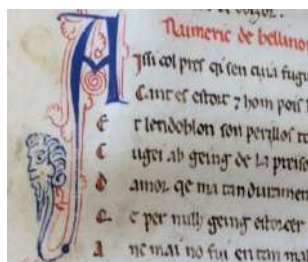 Naimeric de bellinoi
Aissi col pres q sen cuia fugir
Cant es estort 7 hom pois
E t lendoblon son perillos
C uget ab geing de la preiso
D amor qe ma tan duramen
E per nuilh geing estorcer
A ne mai no fui en tan